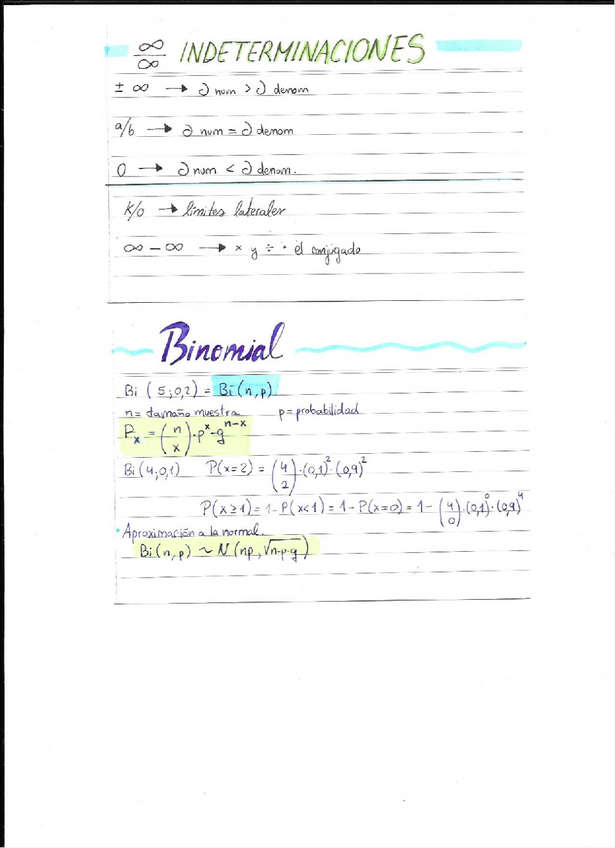 ∞/∞ INDETERMINACIONES
± ∞ → ∂ num > ∂ denom
a/b → ∂ num = ∂ denom
0 → ∂ num < ∂ denom.
K/0 → límites laterales
∞ − ∞ → × y ÷ · el conjugado
Binomial
Bi (5;0,2) = Bi(n,p)
n = tamaño muestra p = probabilidad
Pₓ = (n x) · pˣ · qⁿ⁻ˣ
Bi(4;0,1) P(x=2) = (4 2) · (0,1)² · (0,9)²
P(x≥1) = 1 − P(x<1) = 1 − P(x=0) = 1 − (4 0) · (0,1)⁰ · (0,9)⁴
• Aproximación a la normal.
Bi(n,p) ~ N(np, √n·p·q)